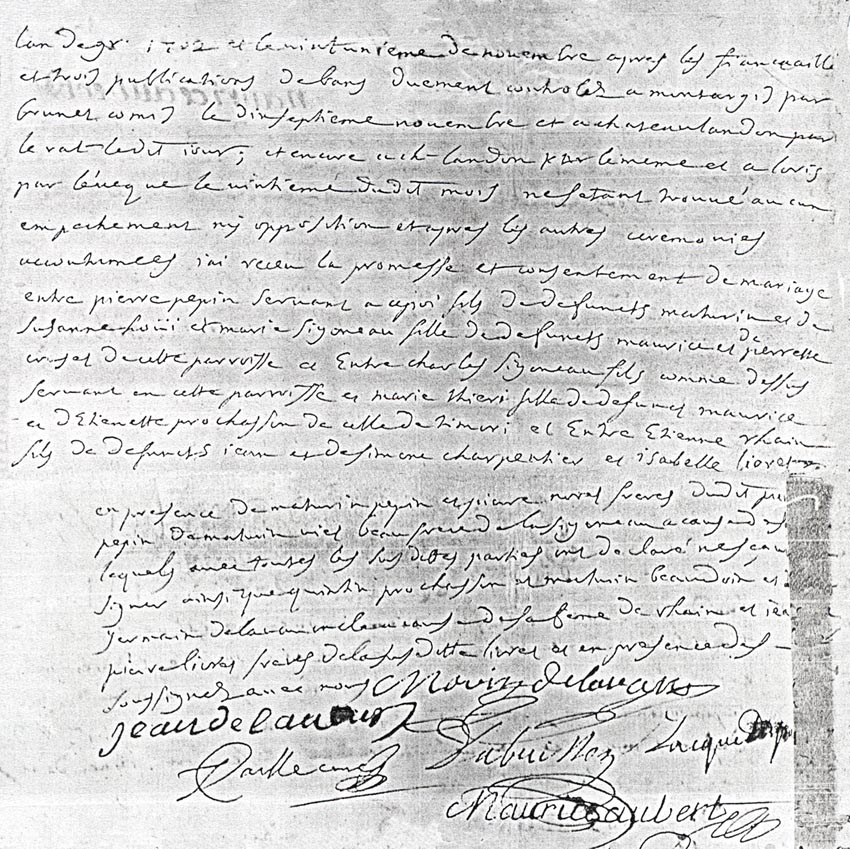 lan de gr. 1702 et le vintunieme de nouembre apres les fiancaille
et trois publications de bans duement controles a montargis par
brunet comis le dixseptieme nouembre et a chateaulandon par
le rat ledit iour, et encore a ch-landon par le meme et a loris
par leueque le uintieme dudit mois ne setant trouué aucun
empechement ny opposition et apres les autres ceremonies
accoutumees iai receu la promesse et consentement de mariage
entre pierre pepin seruant a cepoi fils de defunts maturin et de
susanne et marie sigoneau fille de defunts maurice et de pierrette
de cette parroisse et Entre charles sigoneau fils comme dessus
seruant en cette parroisse et marie thieri fille de defunct maurice
et d'Etienette prochasson de celle de timori et Entre Etienne rhain
fils de defuncts iean et de simone charpentier et isabelle
en presence de maturin pepin et pierre freres dudit
pepin de maturin viel beaufrere de la sigoneau a cause de
lequels auec toutes les susdittes parties ont declaré ne
signer ainsi que quintin prochasson et maturin beaudoin et
germain a cause de sa feme de rhain et
pierre liures freres de la susditte liures et en presence des
soussignez auec nous Morin
Jean
Jacque
Maurice aubert